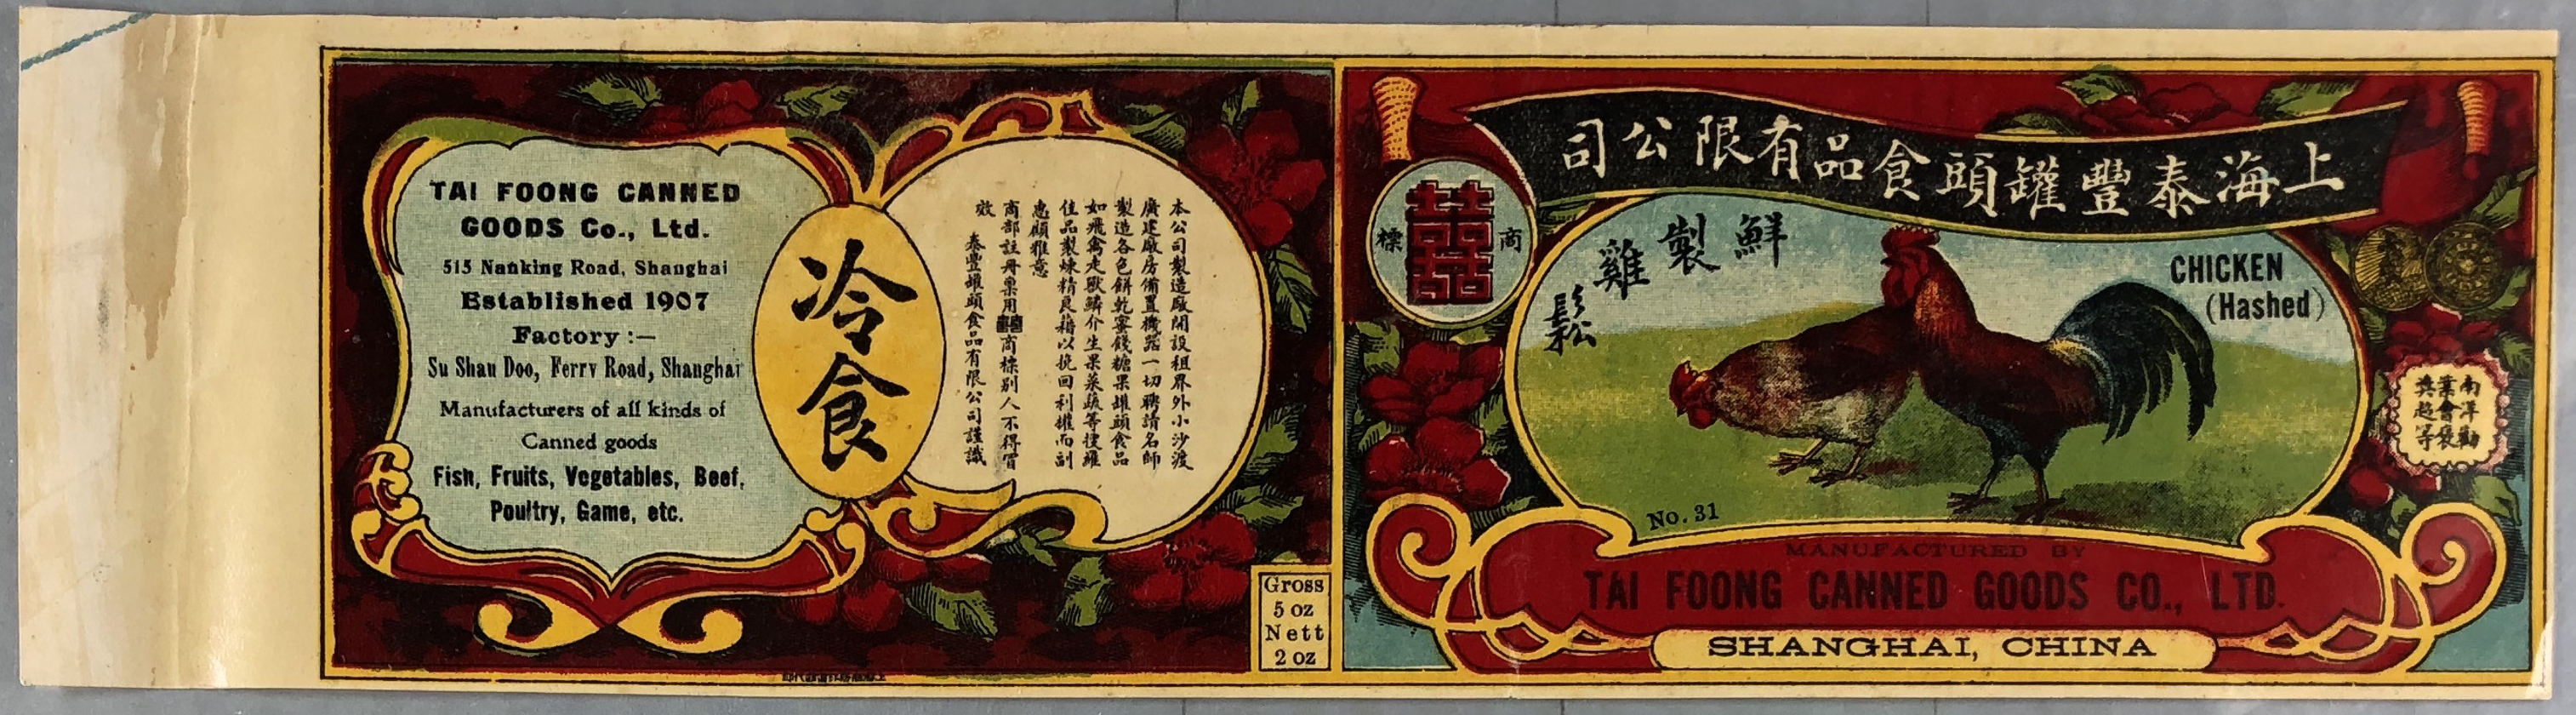 TAI FOONG CANNED
GOODS Co., Ltd.
515 Nanking Road, Shanghai
Established 1907
Factory :—
Su Shau Doo, Ferry Road, Shanghai
Manufacturers of all kinds of
Canned goods
Fish, Fruits, Vegetables, Beef,
Poultry, Game, etc.
冷食
本公司製造廠開設租界外小沙渡
廣建廠房備置機器一切聘請名師
製造各色餅乾蜜餞糖果罐頭食品
如飛禽走獸鱗介生果菜蔬等搜羅
佳品製煉精良藉以挽回利權而副
惠顧雅意
商部註冊稟用囍商標別人不得冒
效
泰豐罐頭食品有限公司謹識
Gross
5 oz
Nett
2 oz
上海泰豐罐頭食品有限公司
商標
囍
鮮製雞鬆
CHICKEN
(Hashed)
南洋勸
業會褒
獎超等
No. 31
MANUFACTURED BY
TAI FOONG CANNED GOODS CO., LTD.
SHANGHAI, CHINA